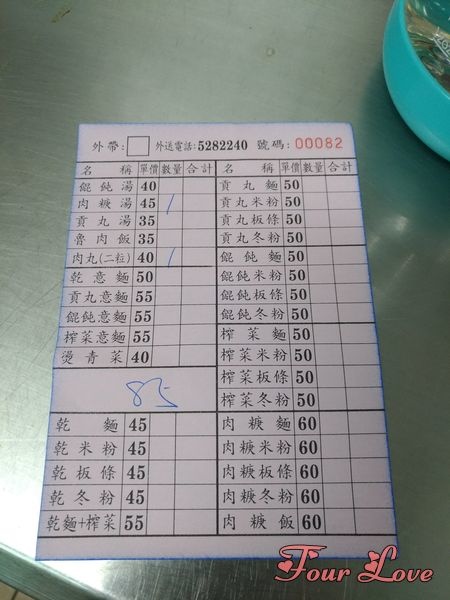 外帶: 外送電話:5282240 號碼:00082
名稱 單價 數量 合計
餛飩湯 40
肉焿湯 45 /
貢丸湯 35
魯肉飯 35
肉丸(二粒) 40 /
乾意麵 50
貢丸意麵 55
餛飩意麵 55
榨菜意麵 55
燙青菜 40
85
乾麵 45
乾米粉 45
乾板條 45
乾冬粉 45
乾麵+榨菜 55
名稱 單價 數量 合計
貢丸麵 50
貢丸米粉 50
貢丸板條 50
貢丸冬粉 50
餛飩麵 50
餛飩米粉 50
餛飩板條 50
餛飩冬粉 50
榨菜麵 50
榨菜米粉 50
榨菜板條 50
榨菜冬粉 50
肉焿麵 60
肉焿米粉 60
肉焿板條 60
肉焿冬粉 60
肉焿飯 60
Four Love